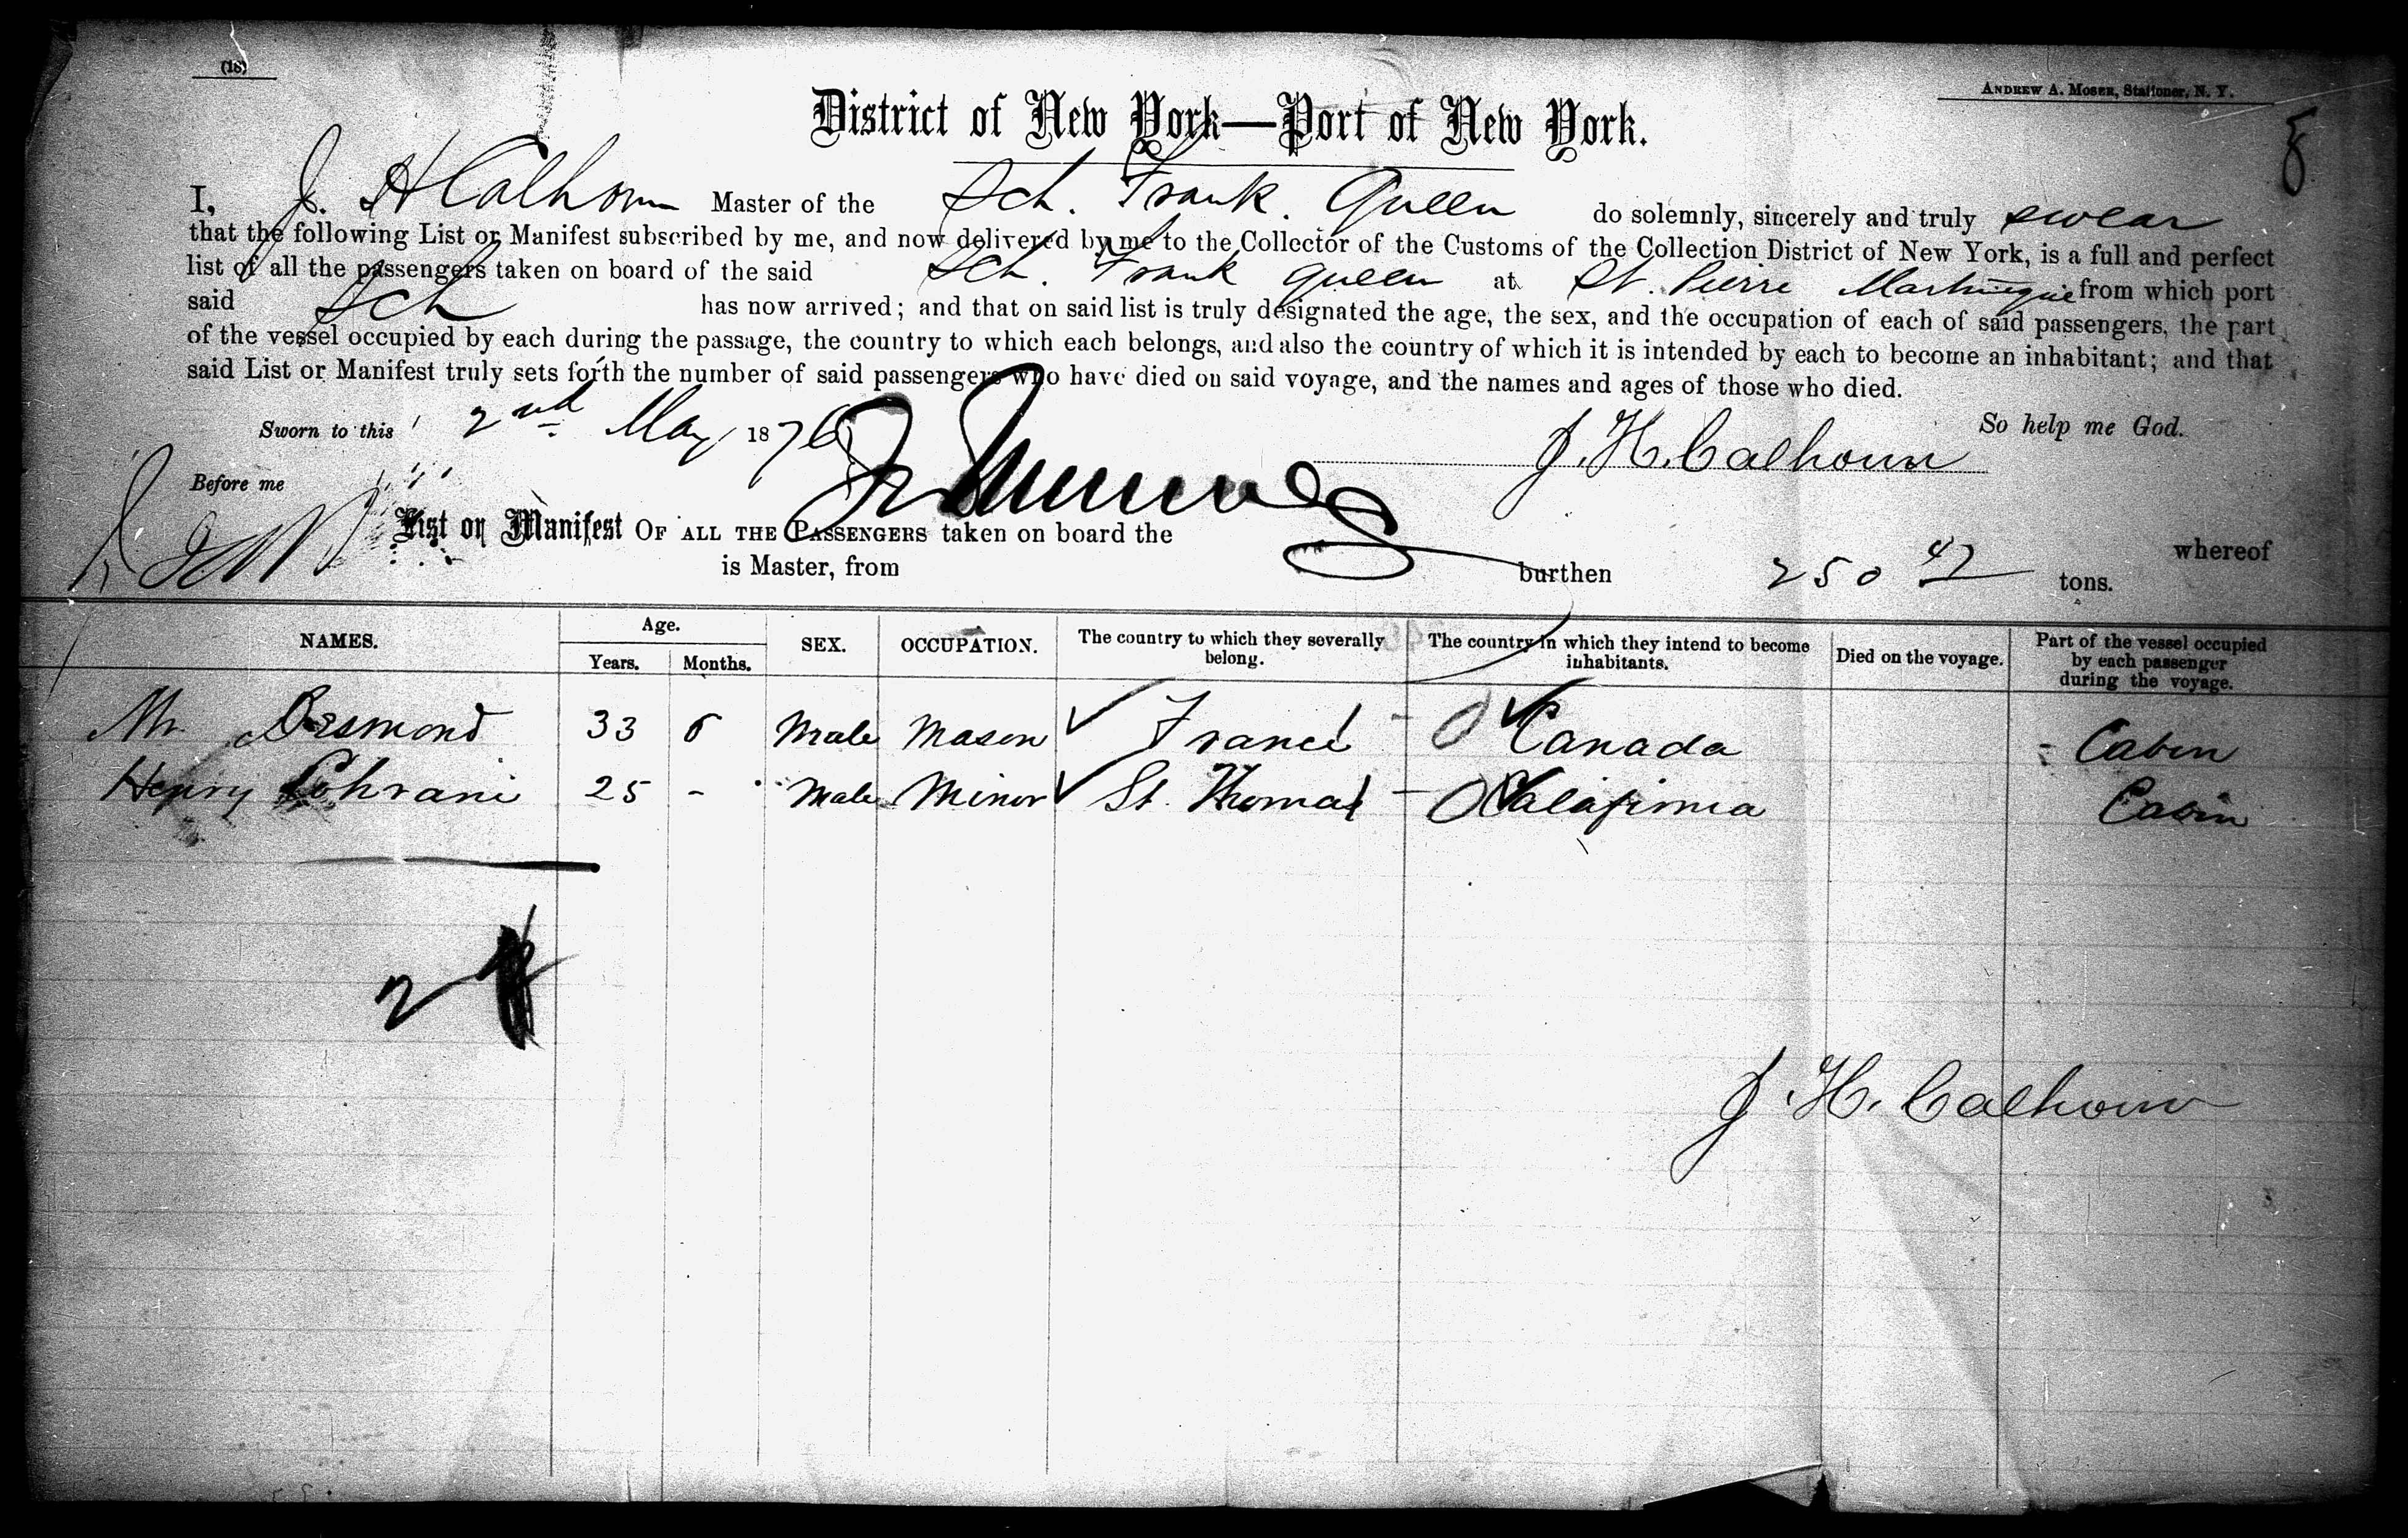 (18)
ANDREW A. MOSER, Stationer, N. Y.
8
District of New York—Port of New York.
I, J. H Calhoun Master of the Sch. Frank. Queen do solemnly, sincerely and truly swear
that the following List or Manifest subscribed by me, and now delivered by me to the Collector of the Customs of the Collection District of New York, is a full and perfect
list of all the passengers taken on board of the said Sch. Frank queen at St. Pierre Martinique from which port
said Sch has now arrived; and that on said list is truly designated the age, the sex, and the occupation of each of said passengers, the part
of the vessel occupied by each during the passage, the country to which each belongs, and also the country of which it is intended by each to become an inhabitant; and that
said List or Manifest truly sets forth the number of said passengers who have died on said voyage, and the names and ages of those who died.
Sworn to this 2nd May 1876 So help me God.
J. H. Calhoun
Before me
List or Manifest OF ALL THE PASSENGERS taken on board the whereof
is Master, from burthen 250 47 tons.
NAMES. Age. Years. Months. SEX. OCCUPATION. The country to which they severally belong. The country in which they intend to become inhabitants. Died on the voyage. Part of the vessel occupied by each passenger during the voyage.
Mr. 33 6 Male Mason France Canada Cabin
Henry 25 - Male Minor St. Thomas Calafirnia Cabin
2
J. H. Calhoun